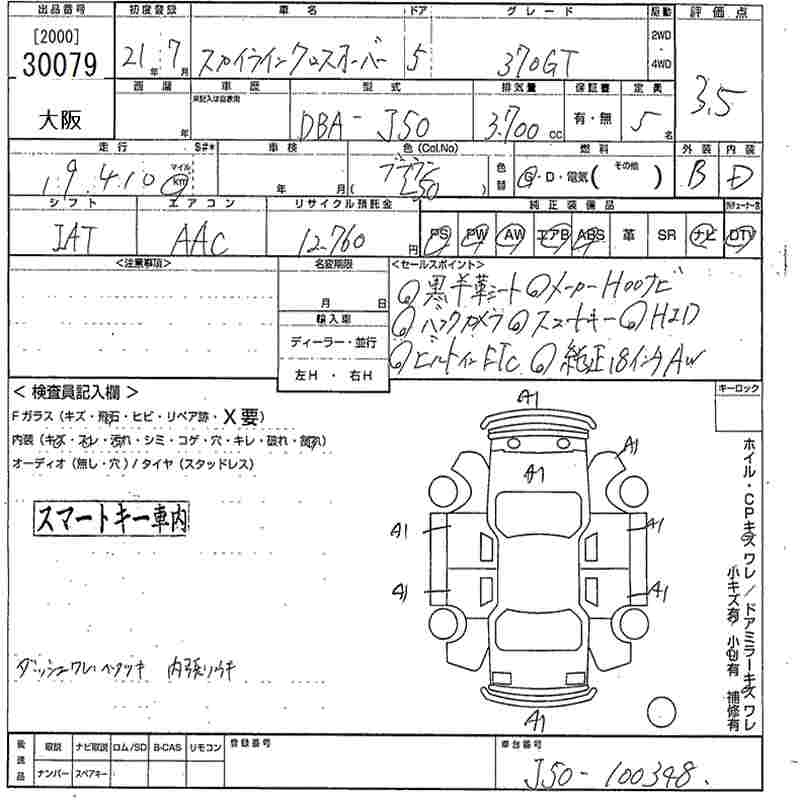 出品番号 初度登録 車名 ドア グレード 駆動 評価点
[2000] 30079 大阪
21年 7月 スカイラインクロスオーバー 5 370GT 2WD 4WD 3.5
西暦 車歴 型式 排気量 保証書 定員
年 未記入は自家用 DBA-J50 3.700cc 有・無 5名
走行 S#* 車検 色(Col.No) 燃料 外装 内装
194.10 マイル km 年 月 ( L50 ) 色替 G・D・電気( その他 ) B D
シフト エアコン リサイクル預託金 純正装備品
IAT AAC 12.760円 PS PW AW エアB ABS 革 SR ナビ DTV
<注意事項> 名変期限 <セールスポイント>
月 日 黒半革シート メーカーHDDナビ
輸入車 バックカメラ スマートキー HID
ディーラー・並行 ビルトインETC 純正18インチAW
左H・右H
< 検査員記入欄 > キーロック
Fガラス(キズ・飛石・ヒビ・リペア跡・X要)
内装(キズ・スレ・汚れ・シミ・コゲ・穴・キレ・破れ・割れ)
オーディオ(無し・穴)/タイヤ(スタッドレス)
スマートキー車内
A1
A1
A1
A1 A1
A1 A1
A1
ダッシュワレ・ベタツキ 内張リウキ
ホイル・CPキズワレ/ドアミラーキズワレ
小キズ有 小凹有 補修有
後送品 取説 ナビ取説 ロム/SD B-CAS リモコン 登録番号 車台番号
ナンバー スペアキー J50-100348.